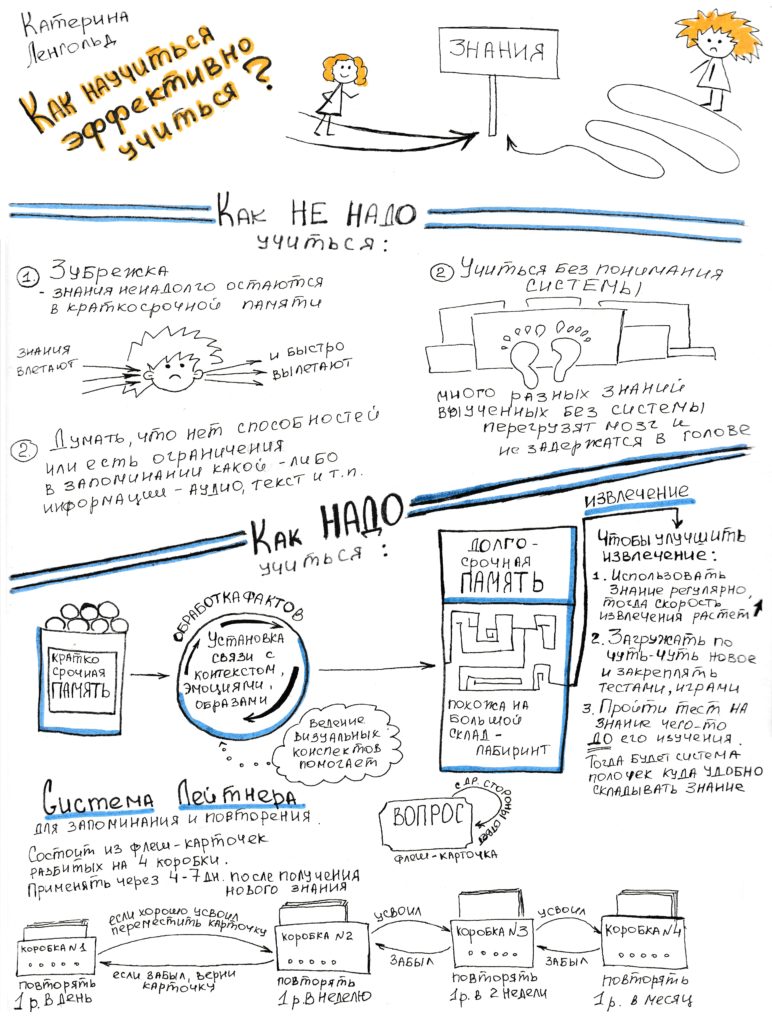 Катерина
Ленгольд
Как научиться
эффективно
учиться?
ЗНАНИЯ
Как НЕ НАДО
учиться:
1. Зубрежка
- знания ненадолго остаются
в краткосрочной памяти
знания
влетают
и быстро
вылетают
2. Думать, что нет способностей
или есть ограничения
в запоминании какой-либо
информации - аудио, текст и т.п.
2 Учиться без понимания
системы
много разных знаний
выученных без системы
перегрузят мозг и
не задержатся в голове
Как НАДО
учиться:
кратко
срочная
ПАМЯТЬ
Обработка фактов
Установка
связи с
контекстом,
эмоциями,
образами
Ведение
визуальных
конспектов
помогает
Долго-
срочная
ПАМЯТЬ
похожа на
большой
склад-
лабиринт
извлечение
Чтобы улучшить
извлечение:
1. Использовать
знание регулярно,
тогда скорость
извлечения растет
2. Загружать по
чуть-чуть новое
и закреплять
тестами, играми
3. Пройти тест на
знание чего-то
ДО его изучения.
Тогда будет система
полочек куда удобно
складывать знание
Система Лейтнера
для запоминания и повторения.
Состоит из флеш-карточек
разбитых на 4 коробки.
Применять через 4-7 дн. после получения
нового знания
ВОПРОС
с др. стороны ответ
флеш-карточка
коробка №1
повторять
1 р. в день
если хорошо усвоил
переместить карточку
если забыл, верни
карточку
коробка №2
повторять
1 р. в неделю
усвоил
забыл
коробка №3
повторять
1 р. в 2 недели
усвоил
забыл
коробка №4
повторять
1 р. в месяц